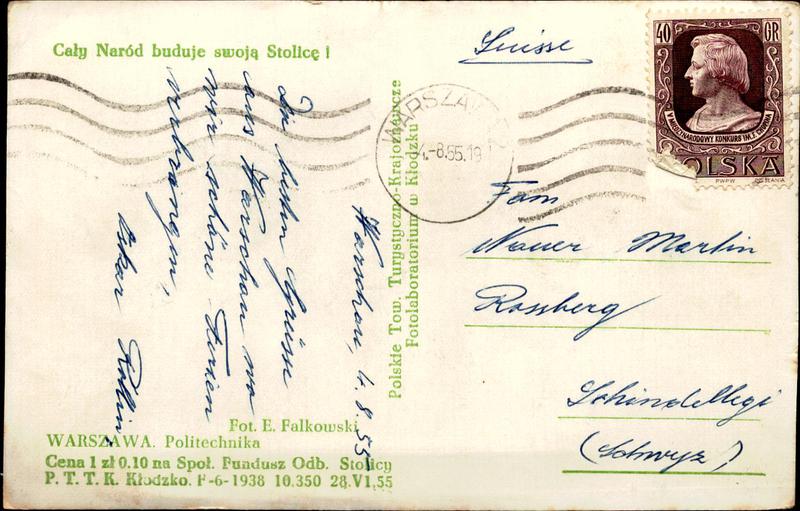 Cały Naród buduje swoją Stolicę !
Warschau, 4.8.55
Die besten Grüsse
aus Warschau wo
wir schöne Ferien
verbringen
Oskar
Fot. E. Falkowski
WARSZAWA. Politechnika
Cena 1 zł 0.10 na Społ. Fundusz Odb. Stolicy
P. T. T. K. Kłodzko. F-6-1938 10.350 28.VI.55
Polskie Tow. Turystyczno-Krajoznawcze
Fotolaboratorium w Kłodzku
WARSZAWA
4.-8.55.19
40 GR
V MIĘDZYNARODOWY KONKURS IM. F. CHOPINA
POLSKA
PWPW
Suisse
Fam
Nauer Martin
Rossberg
Schindellegi
(Schwyz)